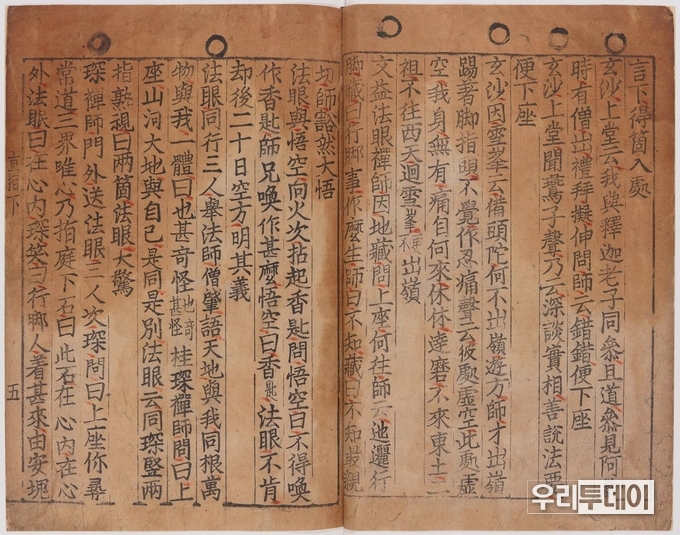 言下得箇入處
玄沙上堂云我與釋迦老子同叅且道叅見阿誰
時有僧出禮拜擬伸問師云錯錯便下座
玄沙上堂聞鷰子聲乃云深談實相善說法要
便下座
玄沙因雪峯云備頭陀何不出嶺遊方師才出嶺
踢著脚指不覺作忍痛聲云彼處虛空此處虛
空我身無有痛自何來休休達磨不來東土二
祖不往西天迴雪峯出嶺
文益法眼禪師因地藏問上座何往師云迤邐行
脚藏曰行脚事作麼生師曰不知藏曰不知最親
切師豁然大悟
法眼與悟空向火次拈起香匙問悟空曰不得喚
作香匙師兄喚作甚麼悟空曰香匙法眼不肯
却後二十日空方明其義
法眼同行三人舉法師僧肇語天地與我同根萬
物與我一體曰也甚奇怪也甚奇怪桂琛禪師問曰上
座山河大地與自己是同是別法眼云同琛竪兩
指熟視曰兩箇法眼大驚
琛禪師門外送法眼三人次琛問曰上座你尋
常道三界唯心乃指庭下石曰此石在心內在心
外法眼曰在心內琛笑曰行脚人着甚來由安塊
直指下 五
우리투데이